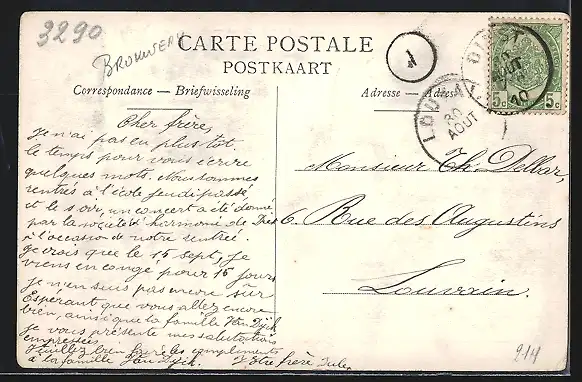 3290
BROUWERY
CARTE POSTALE
POSTKAART
Correspondance — Briefwisseling
Adresse — Adres
1
DIEST
AOUT
10
5c 5c
LOUV
30
AOUT
Cher frère,
Je n'ai pas eu plus tôt
le temps pour vous écrire
quelques mots. Nous sommes
rentrés à l'école jeudi passé
et le soir, un concert a été donné
par la société harmonie de Diest
à l'occasion de notre rentrée.
Je crois que le 15 sept, je
viens en congé pour 15 jours
je n'en suis pas encore sûr
Espérant que vous allez encore
bien, ainsi que la famille Van Dijck
je vous présente mes salutations
empressées
Veuillez bien faire les compliments
à la famille Van Dijck. Votre frère Jules
Monsieur Th. Delbar,
6. Rue des Augustins
Louvain.
214